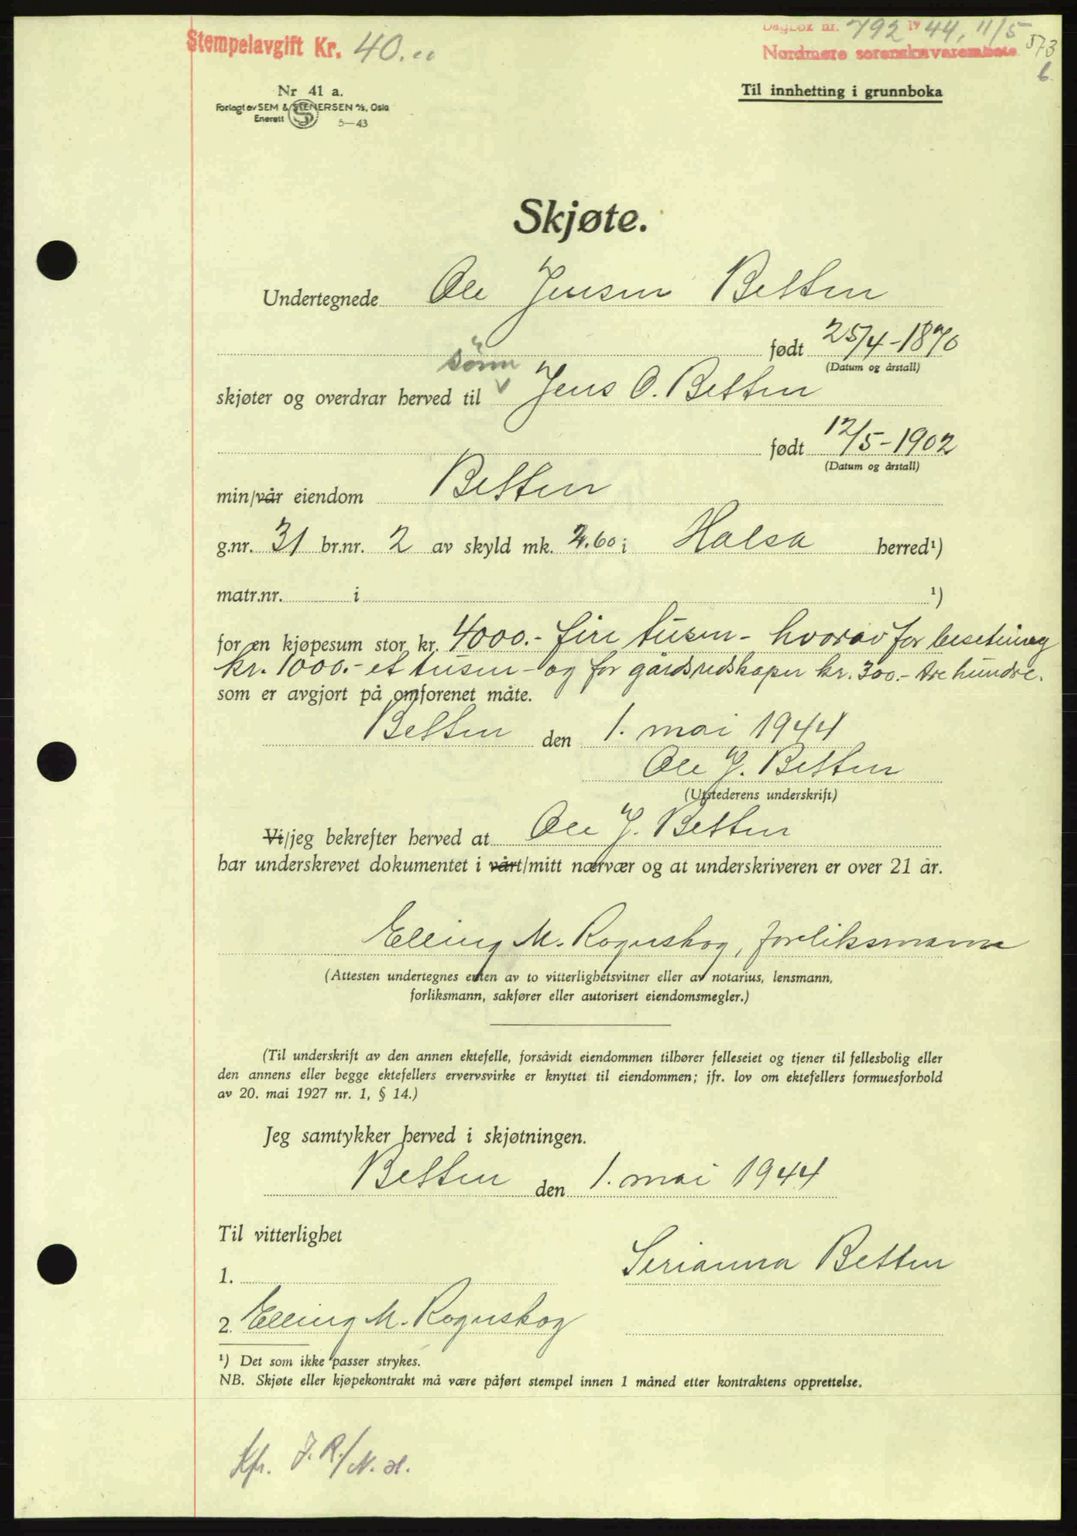 Stempelavgift Kr. 40.00
Dagbok nr. 792 1944, 11/5
Nordmøre sorenskriverembete
573
b.
Nr 41 a.
Forlagt av SEM & STENERSEN A/S, Oslo
Enerett 5—43
Til innhefting i grunnboka
Skjøte.
Undertegnede Ole Jensen Betten
født 25/4-1870
(Datum og årstall)
sönn
skjøter og overdrar herved til Jens O. Betten
født 12/5-1902
(Datum og årstall)
min/vår eiendom Betten
g.nr. 31 br.nr. 2 av skyld mk. 2.60 i Halsa herred¹)
matr.nr. i ¹)
for en kjøpesum stor kr. 4000.- fire tusen - hvorav for besetning
kr. 1000.- et tusen - og for gårdsredskaper kr. 300.- tre hundre.
som er avgjort på omforenet måte.
Betten den 1. mai 1944
Ole J. Betten
(Utstederens underskrift)
Vi/jeg bekrefter herved at Ole J. Betten
har underskrevet dokumentet i vårt/mitt nærvær og at underskriveren er over 21 år.
Elling M. Rognskog, forliksmann
(Attesten undertegnes enten av to vitterlighetsvitner eller av notarius, lensmann,
forliksmann, sakfører eller autorisert eiendomsmegler.)
(Til underskrift av den annen ektefelle, forsåvidt eiendommen tilhører felleseiet og tjener til fellesbolig eller
den annens eller begge ektefellers ervervsvirke er knyttet til eiendommen; jfr. lov om ektefellers formuesforhold
av 20. mai 1927 nr. 1, § 14.)
Jeg samtykker herved i skjøtningen.
Betten den 1. mai 1944
Til vitterlighet
Serianna Betten
1.
2. Elling M. Rognskog
¹) Det som ikke passer strykes.
NB. Skjøte eller kjøpekontrakt må være påført stempel innen 1 måned etter kontraktens opprettelse.
Kfr. J.R./N.H.